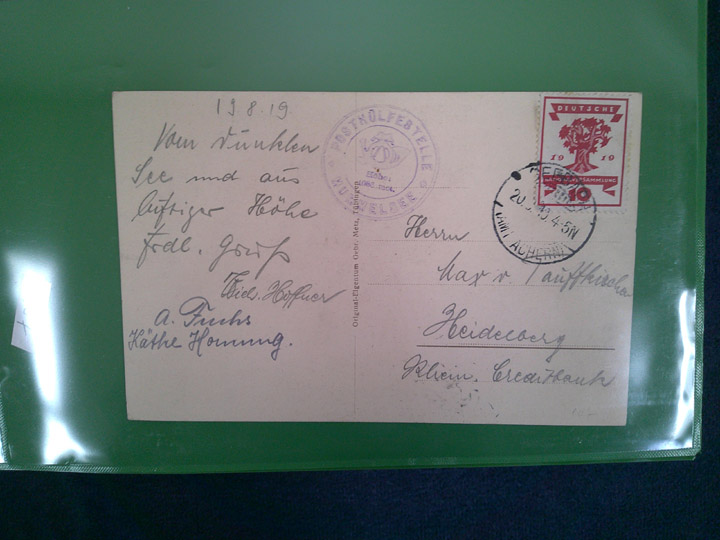 19.8.19.
Vom dunklen
See und aus
luftiger Höhe
frdl. Gruß
Hoffner
A. Fuchs
Käthe Hornung.
POSTHÜLFESTELLE
MUMMELSEE
Original-Eigentum Gebr. Metz, Tübingen
DEUTSCHE
1919
NATIONALVERSAMMLUNG
10
20. 4-5N
(AMT ACHERN)
Herrn
Max v. Tauffkirchen
Heidelberg
Rhein. Creditbank